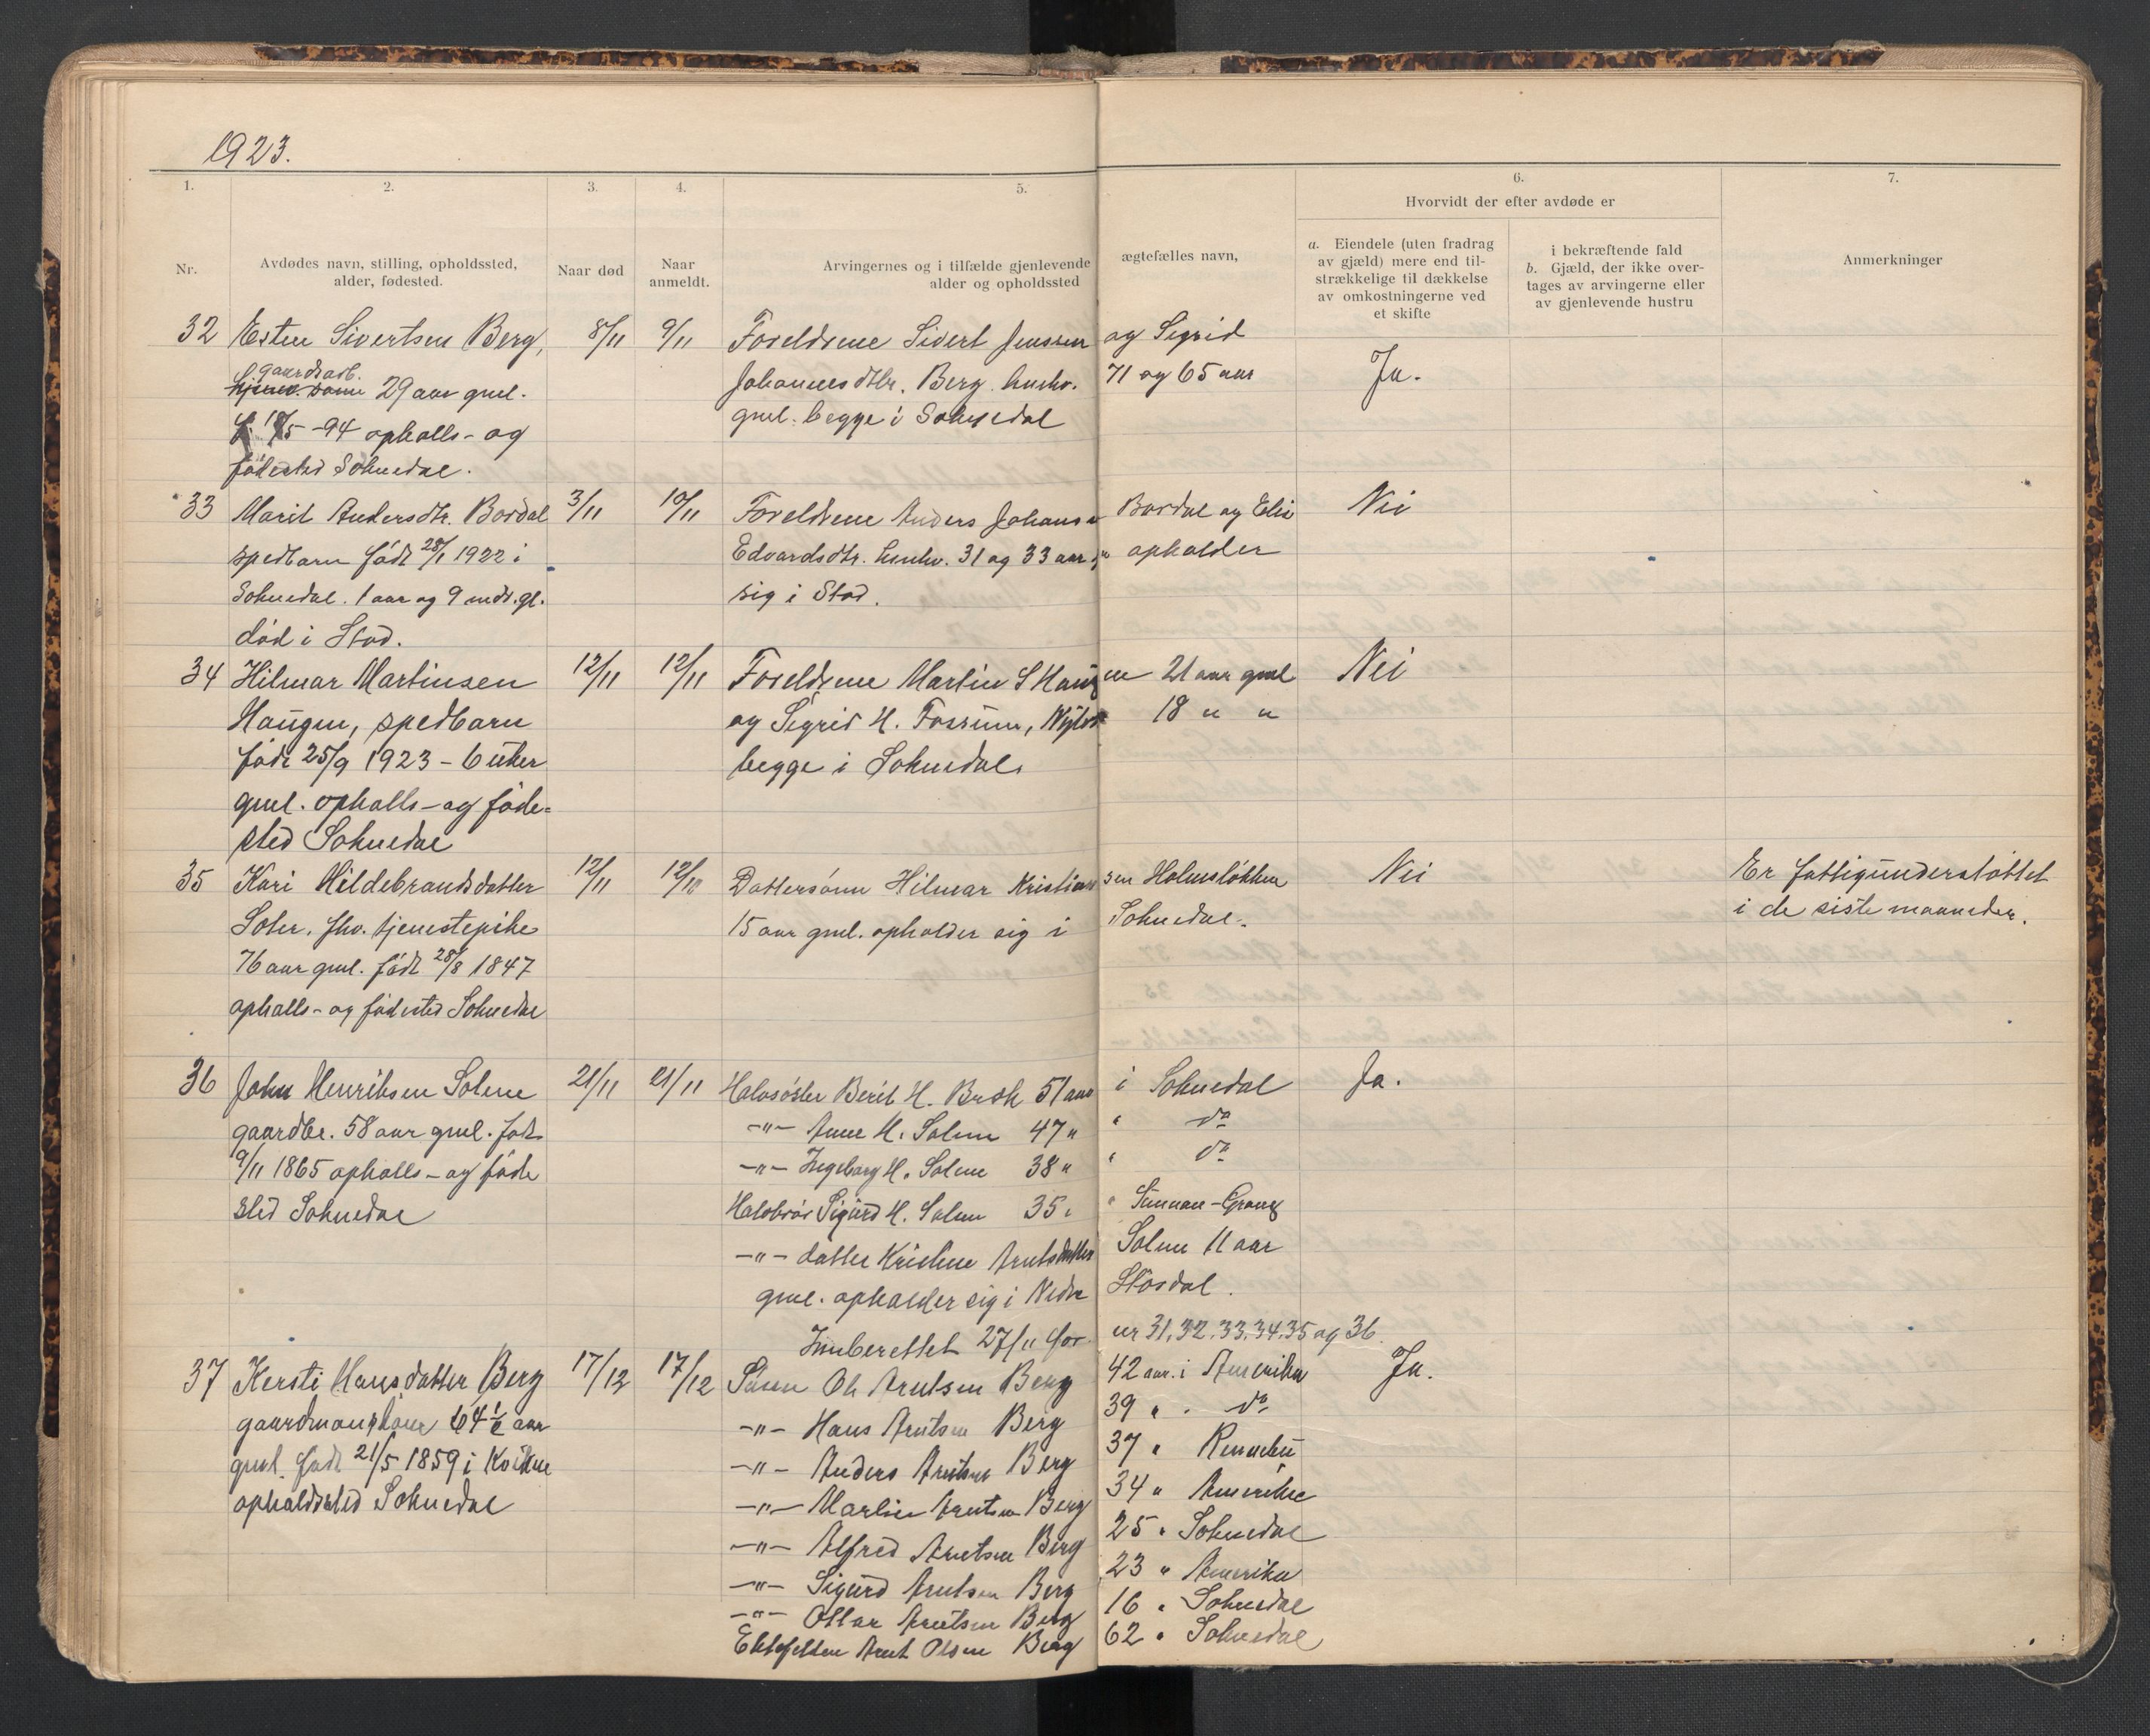 1923.
1. 2. 3. 4. 5. 6. 7.
Hvorvidt der efter avdøde er
Nr.
Avdødes navn, stilling, opholdssted,
alder, fødested.
Naar død
Naar
anmeldt.
Arvingernes og i tilfælde gjenlevende ægtefælles navn,
alder og opholdssted
a. Eiendele (uten fradrag
av gjæld) mere end til-
strækkelige til dækkelse
av omkostningerne ved
et skifte
i bekræftende fald
b. Gjæld, der ikke over-
tages av arvingerne eller
av gjenlevende hustru
Anmerkninger
32 Esten Sivertsen Berg, 8/11 9/11 Foreldrene Sivert Jenssen og Sigrid
gaardsarb.
29 aar gml. Johannesdtr. Berg henhv. 71 og 65 aar Ja.
/5 -94 opholls- og gml. begge i Soknedal
fødested Soknedal.
33 Marit Andersdtr. Bordal 3/11 10/11 Foreldrene Anders Johansen Bordal og Elie Nei
spedbarn født 28/1 1922 i Edvardsdtr. henhv. 31 og 33 aar opholder
Soknedal. 1 aar og 9 mdr. gl. sig i Stod.
død i Stod.
34 Hilmar Martinsen 12/11 12/11 Foreldrene Martin S Haugen 21 aar gml Nei
Haugen, spedbarn og Sigrid H. Fossum, 18 " "
født 25/9 1923 - 6 uker begge i Soknedal.
gml. opholls- og føde=
sted Soknedal
35 Kari Hildebrandsdatter 12/11 12/11 Dattersønn Hilmar Kristiansen Holmsløkken Nei Er fattigunderstøttet
fhv. tjenestepike 15 aar gml. opholder sig i Soknedal. i de siste maaneder.
76 aar gml. født 28/8 1847
opholls- og fødested Soknedal
36 John Henriksen Solem 21/11 21/11 Halvsøster Berit H. 51 aar i Soknedal Ja.
gaardbr. 58 aar gml. født -"- Anne H. Solem 47 " " do
9/11 1865 opholls- og føde -"- Ingeborg H. Solem 38 " " do
sted Soknedal Halvbror Sigurd H. Solem 35 " " Sunnan-Grong
-"- datter Kristine Arntsdatter Solem 11 aar
gml. opholder sig i Nedre Støsdal.
Innberettet 27/11 for nr 31, 32, 33, 34, 35 og 36.
37 Kersti Hansdatter Berg 17/12 17/12 Sønn Ole Arntsen Berg 42 aar i Amerika Ja.
gaardmannskone 64 1/2 aar -"- Hans Arntsen Berg 39 " " do
gml. født 21/5 1859 i Kvikne -"- Anders Arntsen Berg 37 " Rennebu
opholdssted Soknedal -"- Martin Arntsen Berg 34 " Amerika
-"- Alfred Arntsen Berg 25 " Soknedal
-"- Sigurd Arntsen Berg 23 " Amerika
-"- Ottar Arntsen Berg 16 " Soknedal
Ektefellen Arnt Olsen Berg 62 " Soknedal